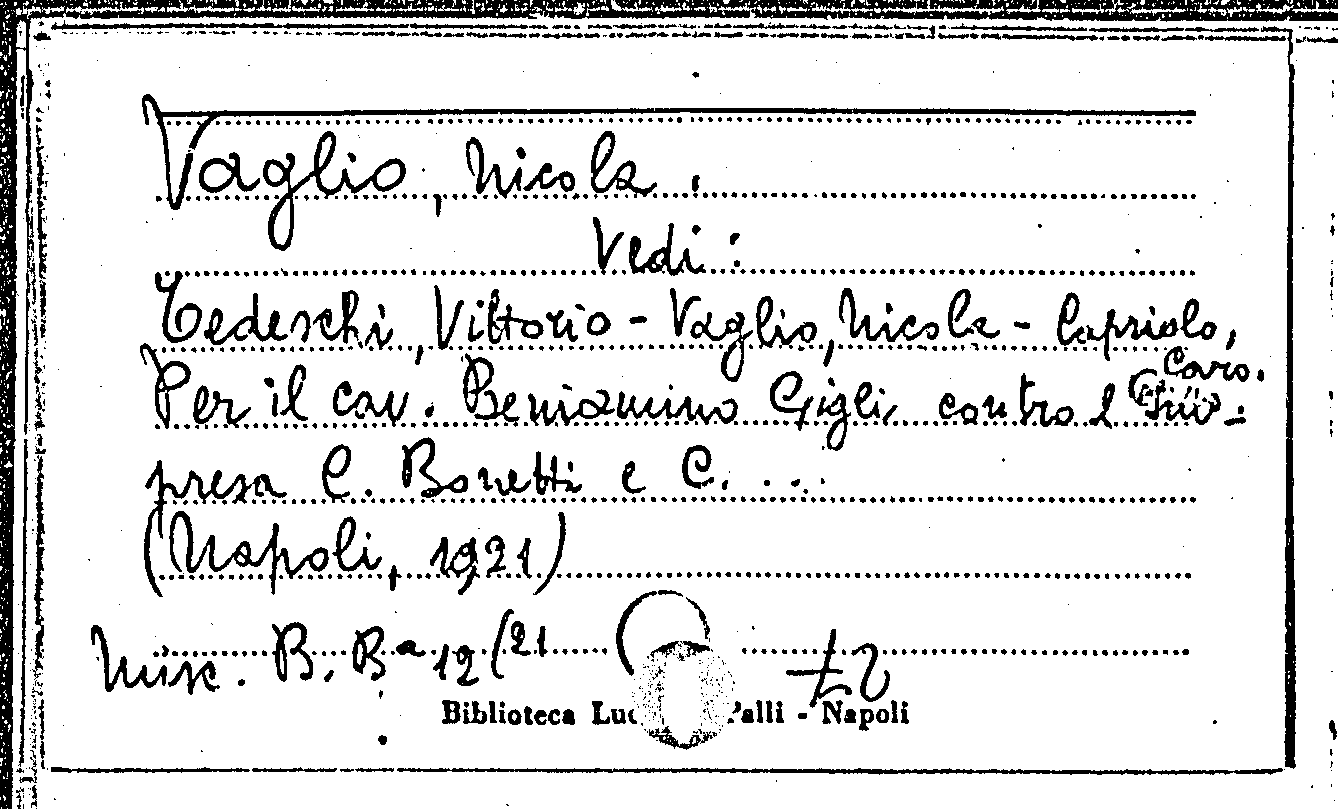 Vaglio, Nicola.
Vedi:
Tedeschi, Vittorio - Vaglio, Nicola - Capriolo,
Caro.
Per il cav. Beniamino Gigli contro l'Im-
presa C. Bonetti e C. ...
(Napoli, 1921)
Misc. B. Bª 12 (21
Biblioteca Luc Palli - Napoli